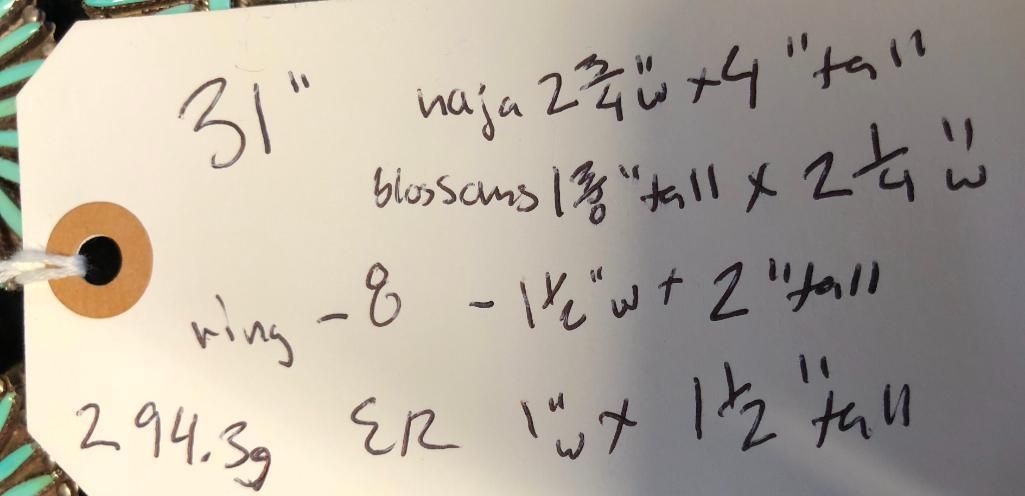 31" naja 2 3/4" w x 4" tall
blossoms 1 3/8" tall x 2 1/4" w
ring - 8 - 1 1/2" w + 2" tall
294.3g ER 1" w x 1 1/2" tall